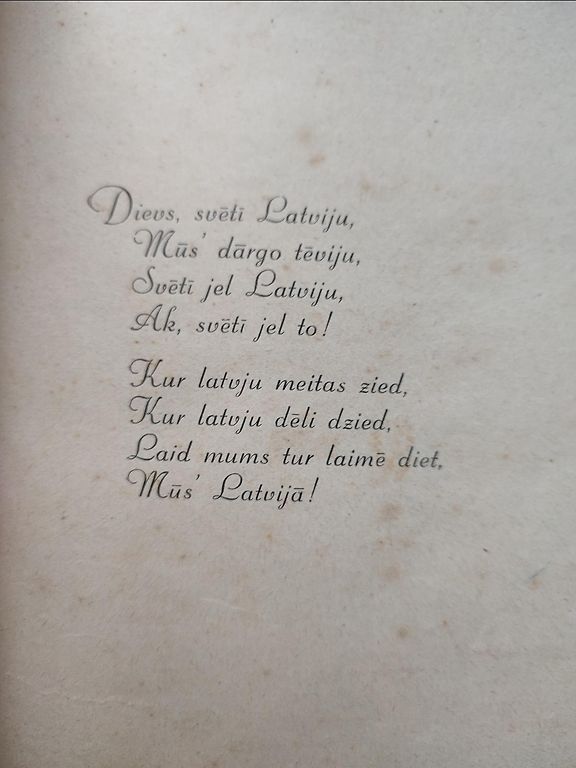 Dievs, svētī Latviju,
Mūs' dārgo tēviju,
Svētī jel Latviju,
Ak, svētī jel to!
Kur latvju meitas zied,
Kur latvju dēli dzied,
Laid mums tur laimē diet,
Mūs' Latvijā!